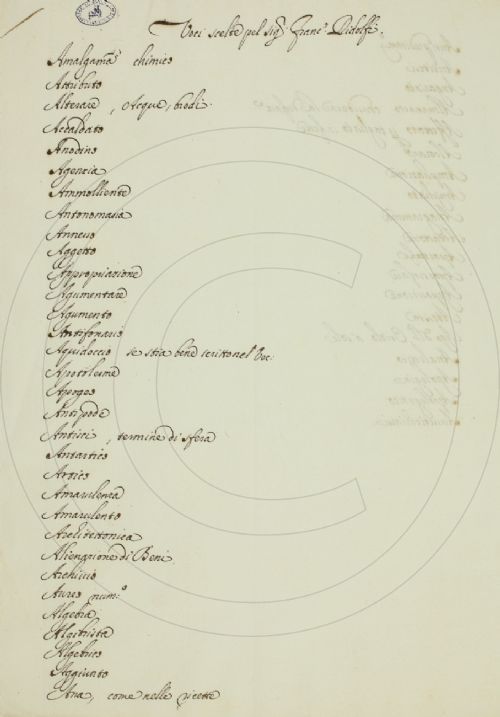 Voci scelte pel Sig.r Franc.o Ridolfi.
Amalgama chimico
Attributo
Alterare, Acque, brodi.
Accaldato
Anodino
Agenzia
Ammolliente
Antonomasia
Anneus
Aggetto
Appropriazione
Agumentare
Agumento
Antifonario
Aquidoccio se stia bene scritto nel Voc:
Apotelesme
Apogeo
Antipode
Antieci, termine di sfera
Antartico
Artico
Amarulenza
Amarulento
Architettonica
Alienazione di Beni.
Archivio
Aureo num:o
Algebra
Algebrista
Algebrico
Aggiunto
Ana, come nelle ricette